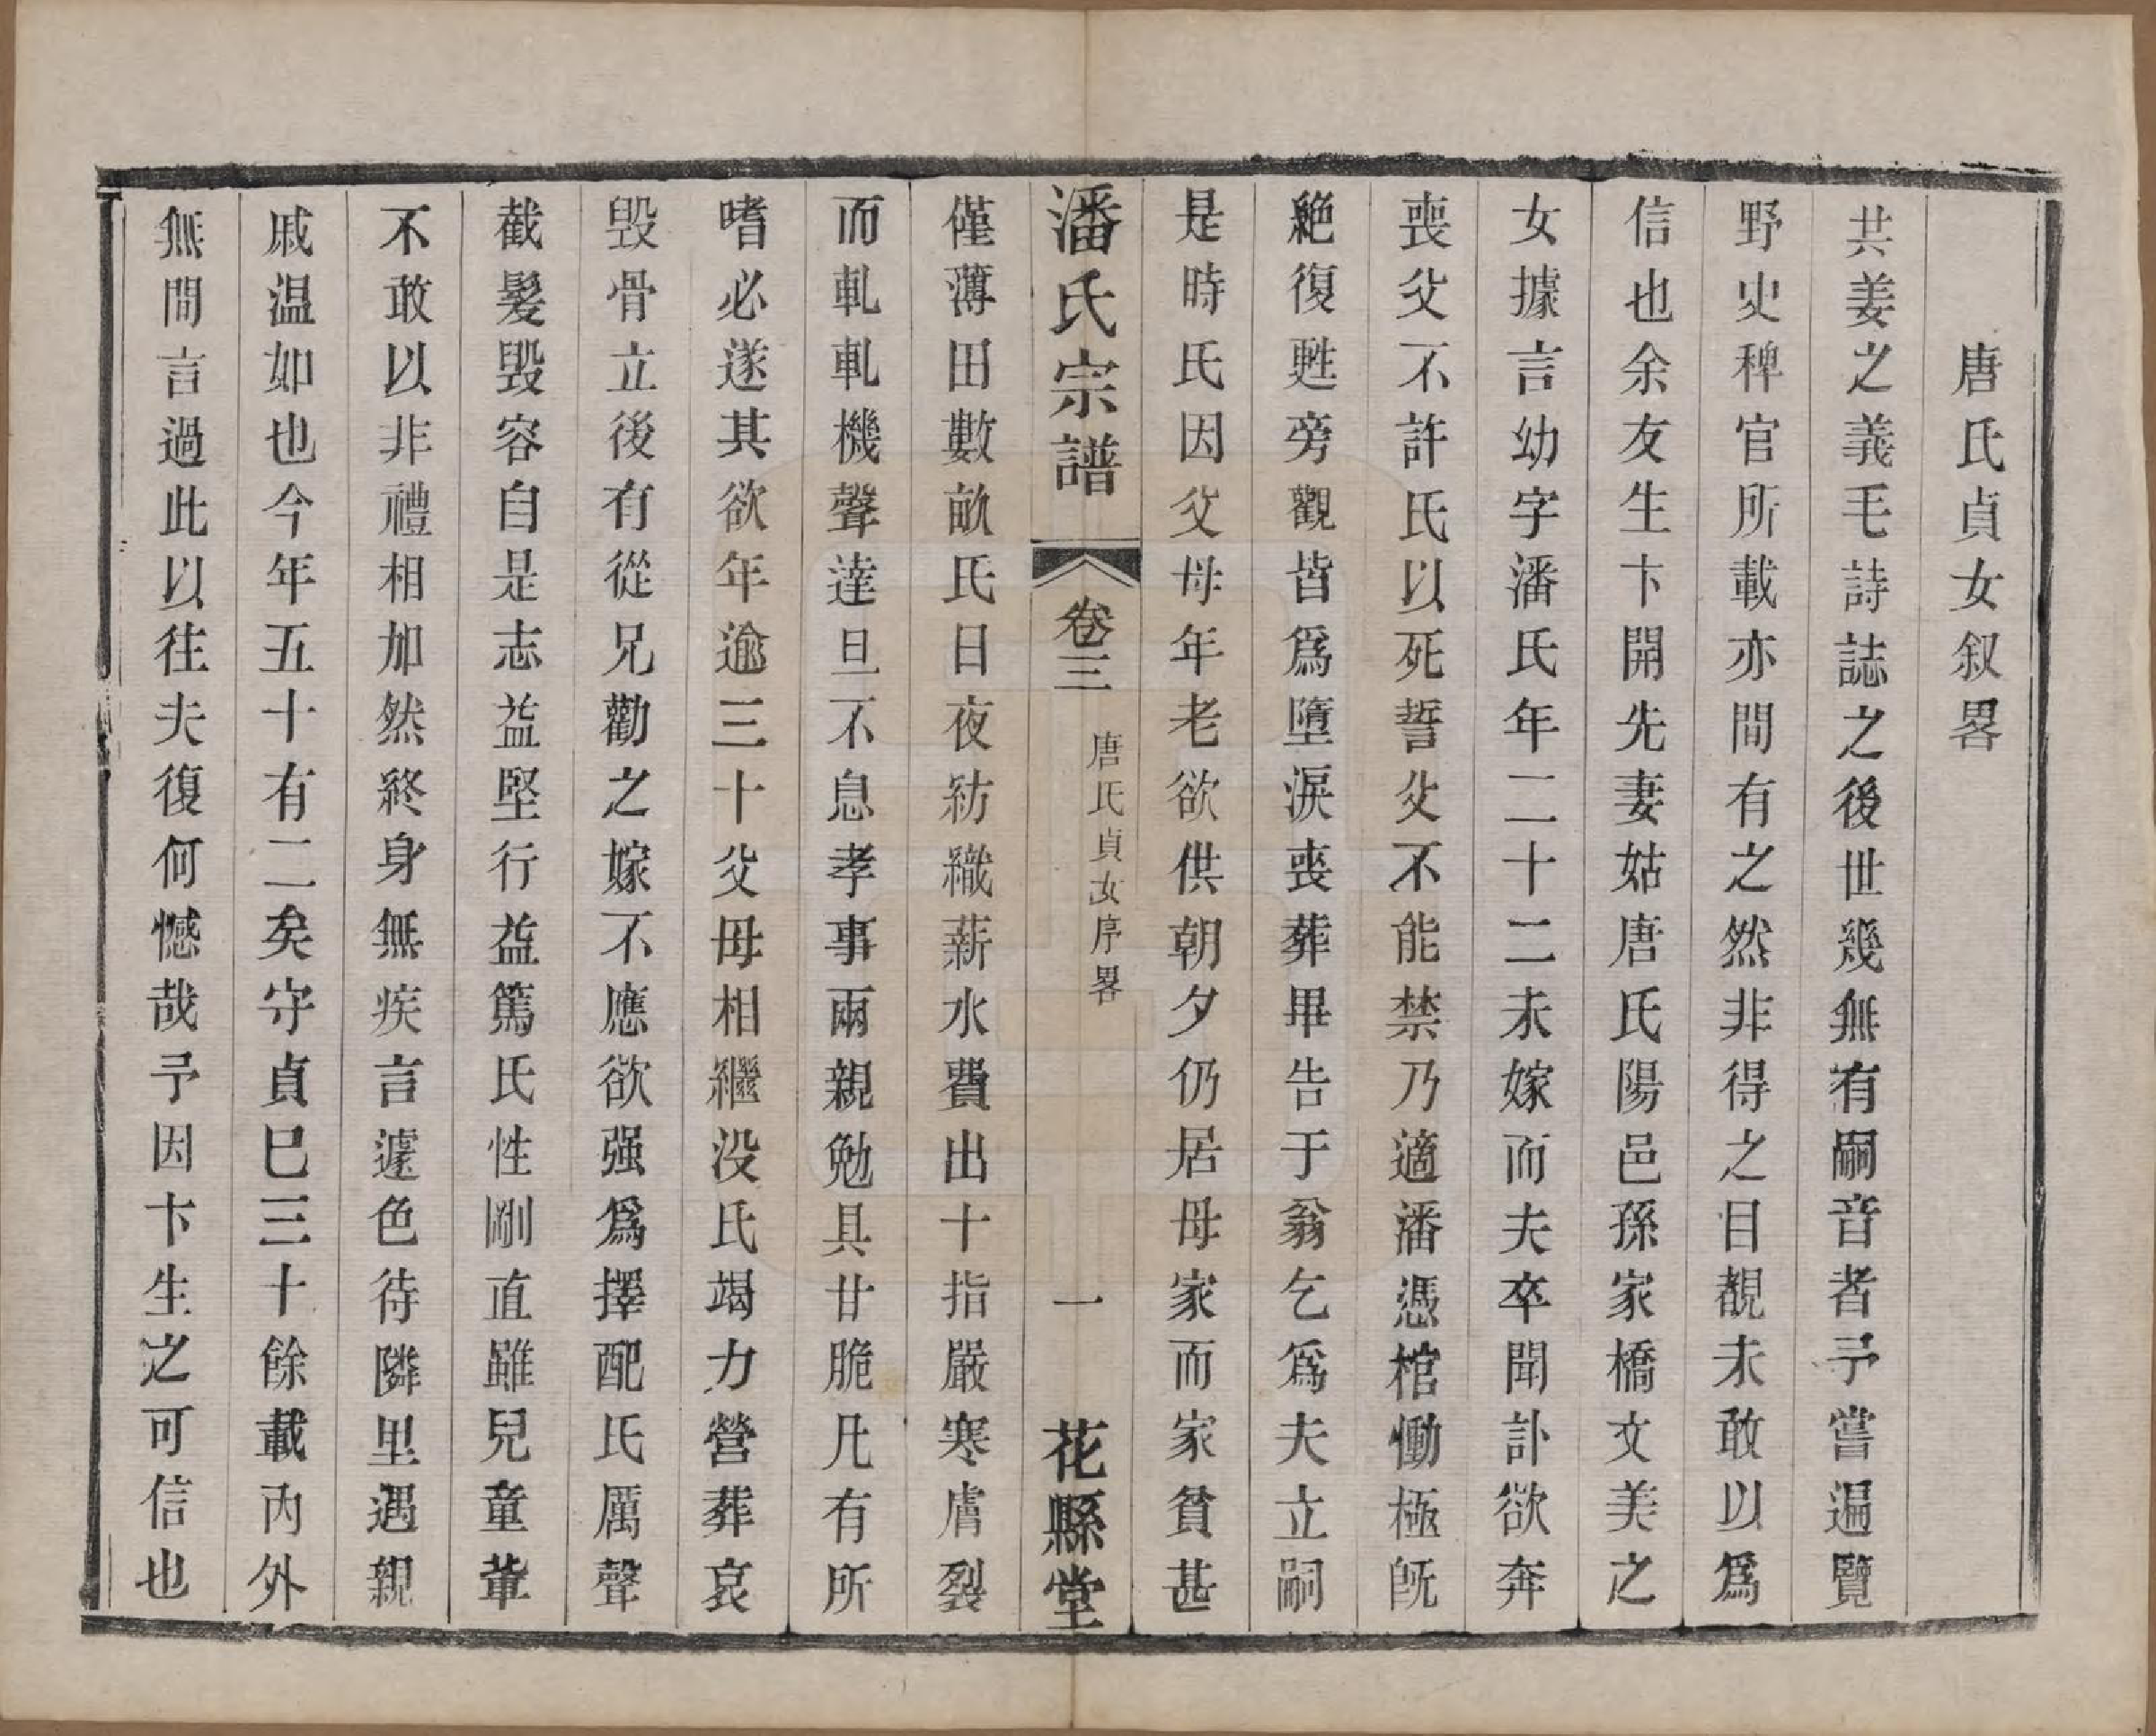 唐氏貞女叙畧
共姜之義毛詩誌之後世幾無有嗣音者予嘗遍覽
野史稗官所載亦間有之然非得之目覩未敢以爲
信也余友生卞開先妻姑唐氏陽邑孫家橋文美之
女據言幼字潘氏年二十二未嫁而夫卒聞訃欲奔
喪父不許氏以死誓父不能禁乃適潘憑棺慟極旣
絶復甦旁觀皆爲墮淚喪葬畢告于翁乞爲夫立嗣
是時氏因父母年老欲供朝夕仍居母家而家貧甚
潘氏宗譜 卷三 唐氏貞女序畧 一 花縣堂
僅薄田數畝氏日夜紡織薪水費出十指嚴寒膚裂
而軋軋機聲達旦不息孝事兩親勉具甘脆凡有所
嗜必遂其欲年逾三十父母相繼没氏竭力營葬哀
毁骨立後有從兄勸之嫁不應欲强爲擇配氏厲聲
截髮毁容自是志益堅行益篤氏性剛直雖兒童輩
不敢以非禮相加然終身無疾言遽色待隣里遇親
戚温如也今年五十有二矣守貞巳三十餘載内外
無間言過此以往夫復何憾哉予因卞生之可信也